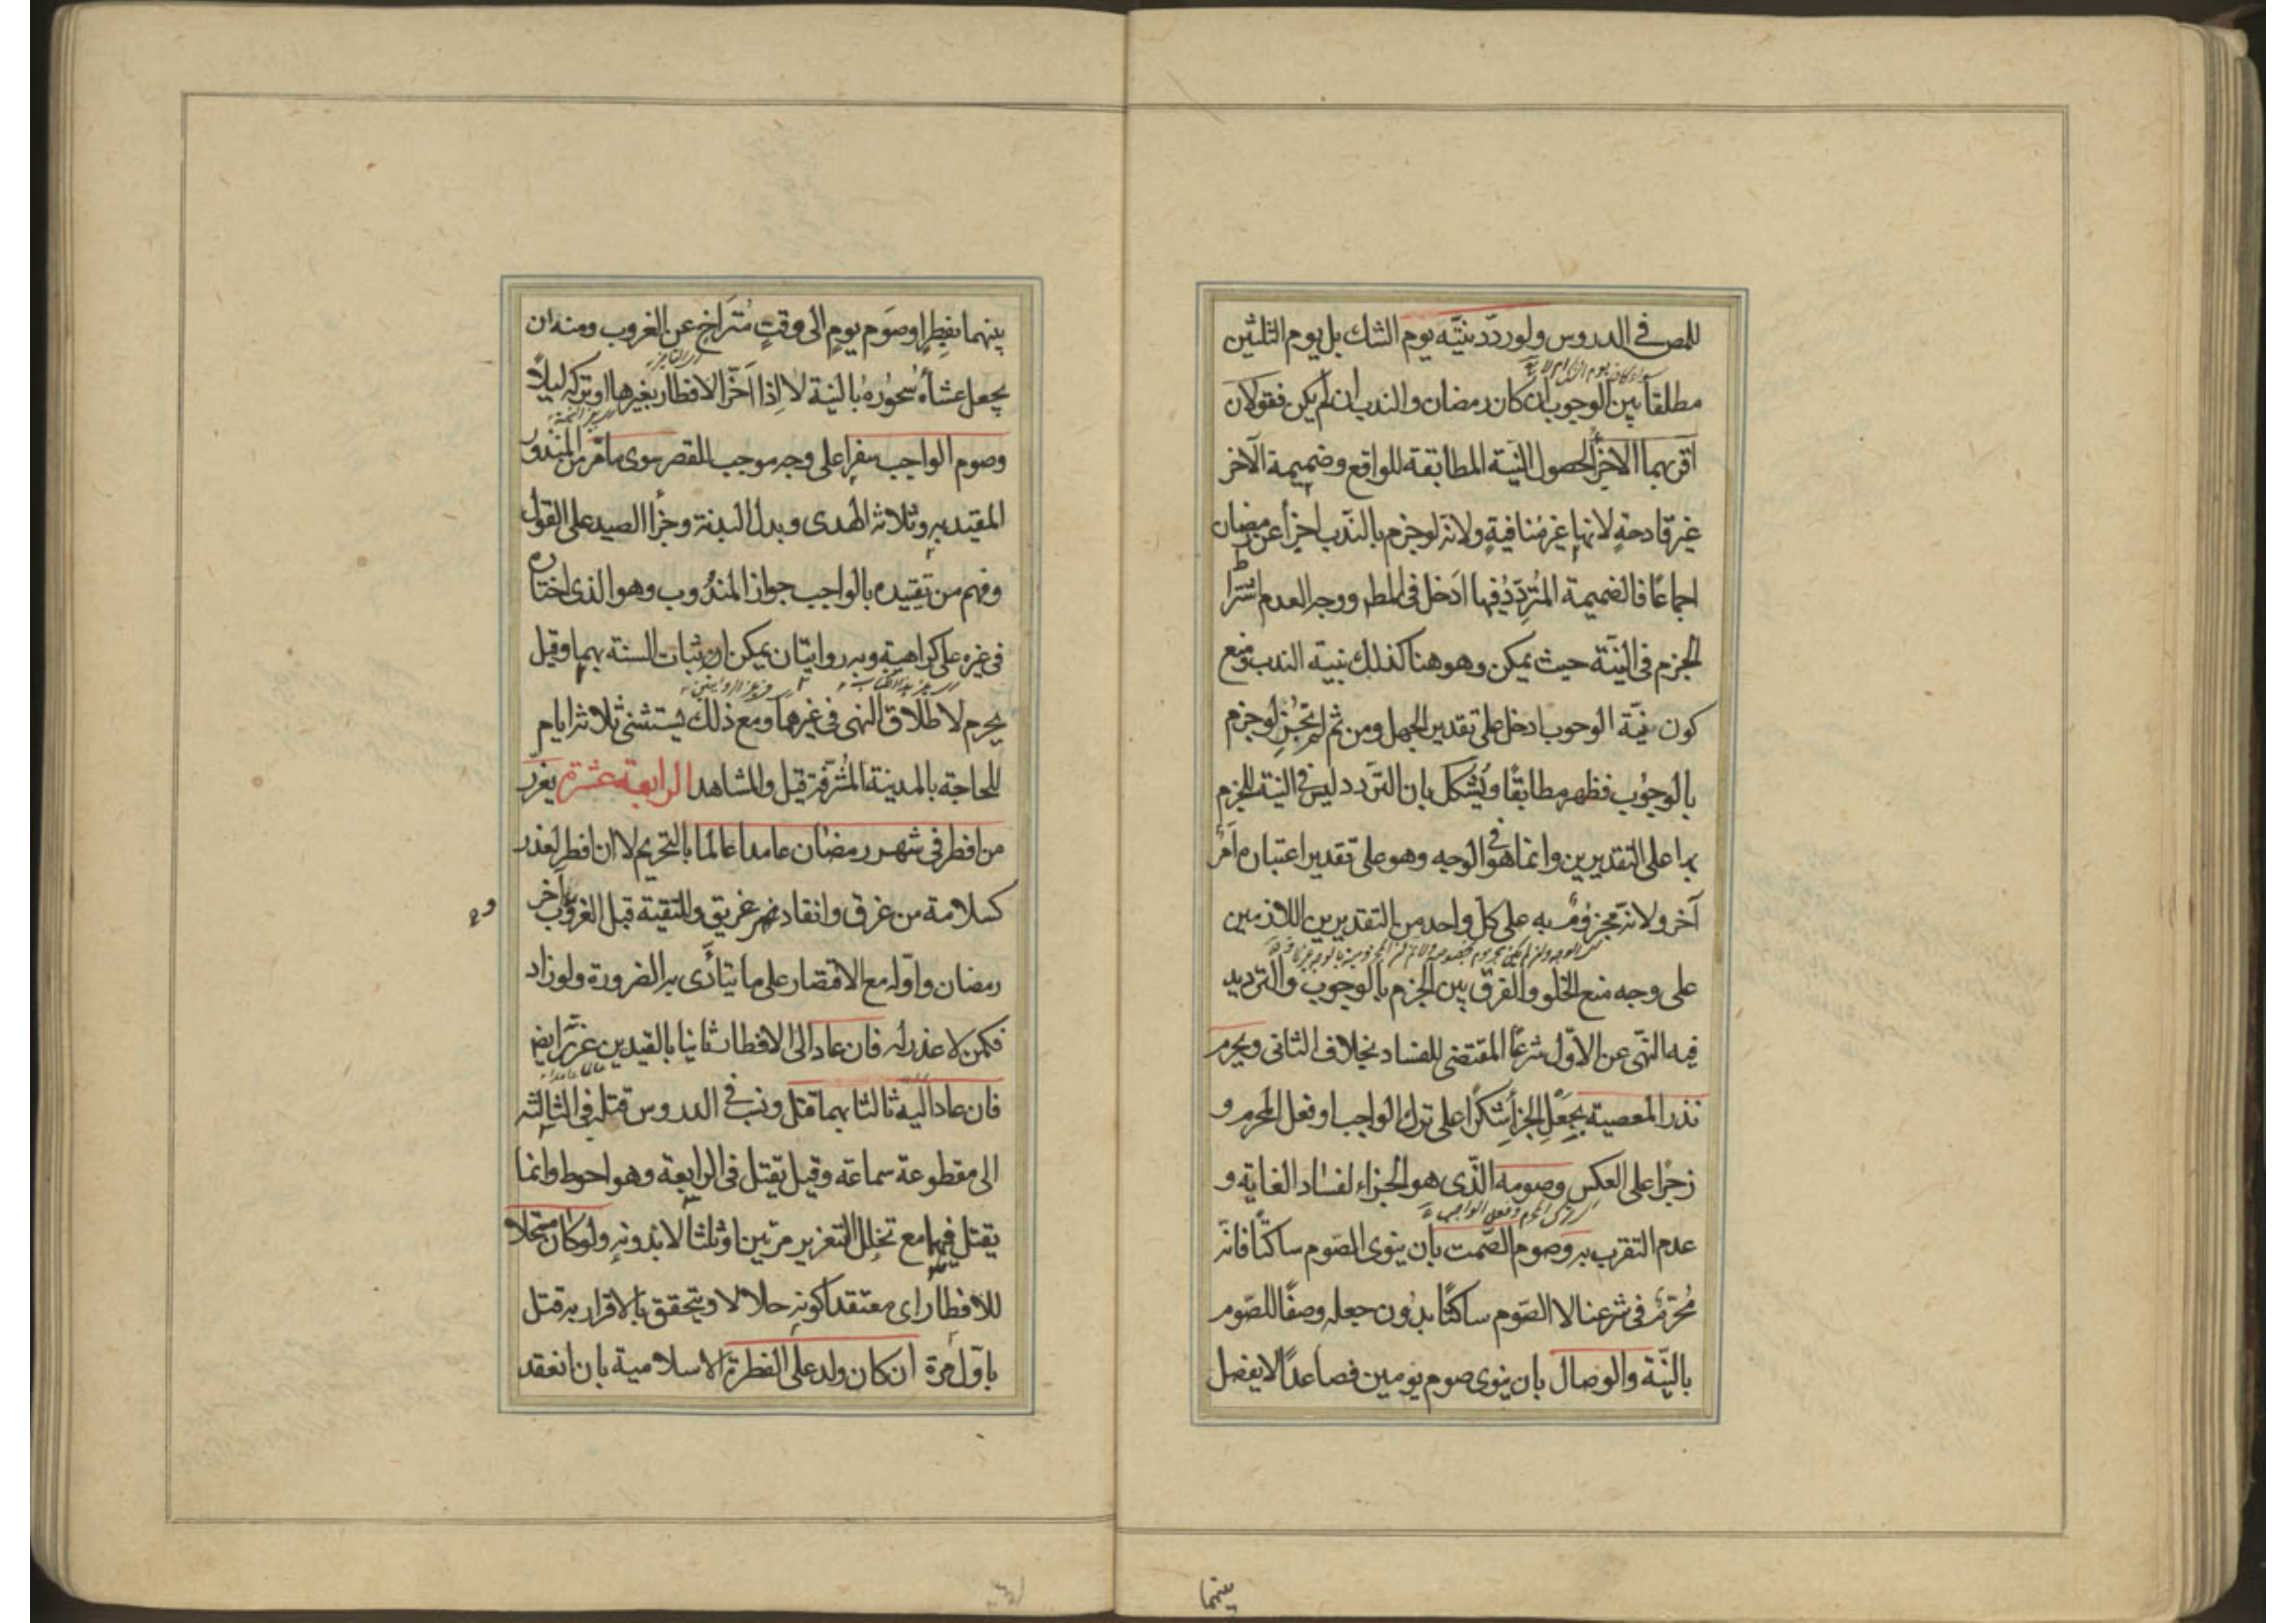 للمص في الدروس ولو ردّد نيّته يوم الشك بل يوم الثلثين
مطلقا بين الوجوب ان كان رمضان والندب ان لم يكن فقولان
اقربهما الاجزأ لحصول النية المطابقة للواقع وضميمة الآخر
غير قادحةٍ لانها غير مُنافيةٍ ولانه لو جزم بالندب اجزأ عن رمضان
اجماعًا فالضميمة المُتردّدُ فيها ادخل في المط ووجه العدم اشتراط
الجزم في النيّة حيث يمكن وهو هنا كذلك بنية الندب ومنع
كون نيّة الوجوب ادخل على تقدير الجهل ومن ثم لم يُجزِ لو جزم
بالوجوب فظهر مطابقًا ويُشكل بان التردد ليس في النية للجزم
بها على التقديرين وانما هو في الوجه وهو على تقدير اعتباره امرٌ
آخر ولانه مجزومٌ به على كل واحد من التقديرين اللازمين
على وجه منع الخلو والفرق بين الجزم بالوجوب والترديد
فيه النّهى عن الاوّل شرعًا المقتضى للفساد بخلاف الثانى ويحرم
نذر المعصية بجعل الجزأ شكرًا على ترك الواجب او فعل المحرم و
زجرًا على العكس وصومه الّذى هو الجزاء لفساد الغاية و
اى ترك المحرم وفعل الواجب
عدم التقرب به وصوم الصّمت بان ينوى الصّوم ساكتًا فانّه
مُحرّمٌ في شرعنا لا الصّوم ساكتًا بدُون جعله وصفًا للصّوم
بالنّية والوصال بان ينوى صوم يومين فصاعدًا لا يفصل
بينهما
بينهما بفِطرٍ او صَوم يومٍ الى وقتٍ مُتَراخٍ عن الغروب ومنه ان
يجعل عشاه سُحُورهُ بالنية لا اِذا اَخّر الافطار بغيرها او تركه ليلًا
وصوم الواجب سفرا على وجه موجب للقصر سوى مامّر من المنذور
المقيد به وثلاثة الهدى وبدل البدنة وجزأ الصيد على القول
وفهم من تقييده بالواجب جواز المندُوب وهو الذى اختاره
في غيره على كراهية وبه روايتان يمكن اثبات السنة بهما وقيل
يحرم لاطلاق النهى في غيرها ومع ذلك يستثنى ثلاثة ايام
للحاجة بالمدينة المُشرّفة قيل والمشاهد الرابعة عشرة يعزّر
من افطر في شهر رمضان عامدا عالما بالتحريم لا ان افطر لعذر
كسلامة من غرق وانقاد غريق وللتقية قبل الغروب وآخر
رمضان واوّله مع الاقتصار على ما يتأدّى به الضرورة ولو زاد
فكمن لا عذر له فان عاد الى الافطار ثانيا بالقيدين عزّر ايض
فان عاد اليه ثالثا بهما قتل ونسب في الدروس قتله في الثالثة
الى مقطوعة سماعة وقيل يقتل في الرابعة وهو احوط وانما
يقتل فيهما مع تخلل التعزير مرتين او ثلثا لا بدونه ولو كان مستحلا
للافطار اى معتقدا كونه حلالا ويتحقق بالاقرار به قتل
باوّل مرة ان كان ولد على الفطرة الاسلامية بان انعقد